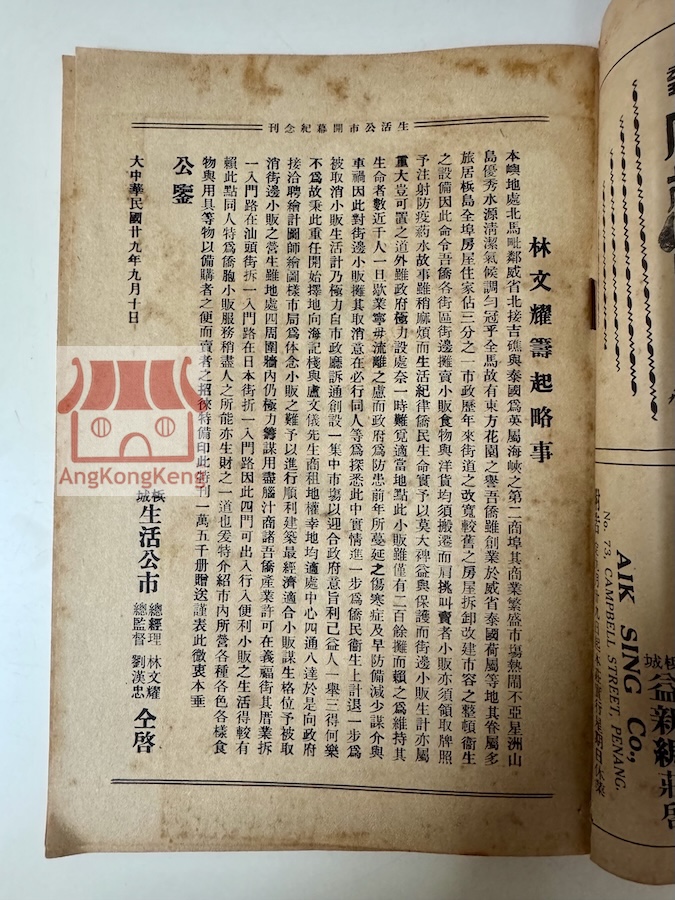 刊念紀幕開市公活生
林文耀籌起略事
本嶼地處北馬毗鄰威省北接吉礁與泰國為英屬海峽之第二商埠其商業繁盛市塲熱閙不亞星洲山
島優秀水源清潔氣候調勻冠乎全馬故有東方花園之譽吾僑雖創業於威省泰國荷屬等地其眷屬多
旅居梹島全埠房屋住家佔三分之一市政歷年來街道之改寬較舊之房屋拆卸改建市容之整頓衛生
之設備因此命令吾僑各街區街邊擺賣小販食物與洋貨均須搬遷而肩挑叫賣者小販亦須領取牌照
予注射防疫葯水故事雖稍麻煩而生活紀律僑民生命實予以莫大碑益與保護而街邊小販生計亦屬
重大豈可置之道外雖政府極力設處奈一時難覓適當地點此小販雖僅有二百餘攤而賴之為維持其
生命者數近千人一旦歇業寧毋流離之慮而政府為防患前年所蔓延之傷寒症及早防備減少謀介與
車禍因此對街邊小販攤其取消意在必行同人等為探悉此中實情進一步為僑民衛生上計退一步為
被取消小販生活計乃極力自市政廳訴通創設一集中市塲以迎合政府意旨利己益人一舉三得何樂
不為故秉此重任開始擇地向海記棧與盧文儀先生商租地權幸地均適處中心四通八達於是向政府
接洽聘繪計圖師繪圖樣市局為休念小販之難予以進行順利建築最經濟適合小販謀生格位予被取
消街邊小販之營生雖地處四周圍牆內仍極力籌謀用盡腦汁商諸吾僑產業許可在義福街其厝業拆
一入門路在汕頭街拆一入門路在日本街折一入門路因此四門可出入行入便利小販之生活得較有
賴此點同人特為僑胞小販服務稍盡人之所能亦生財之一道也爰特介紹市內所營各種各色各樣食
物與用具等物以備購者之便而賣者之招徠特備印此特刊一萬五千册贈送謹表此微衷本垂
公鑒
梹城 生活公市 總經理 林文耀 總監督 劉漢忠 仝啓
大中華民國廿九年九月十日
AngKongKeng
AIK SING Co.,
No. 73, CAMPBELL STREET, PENANG.